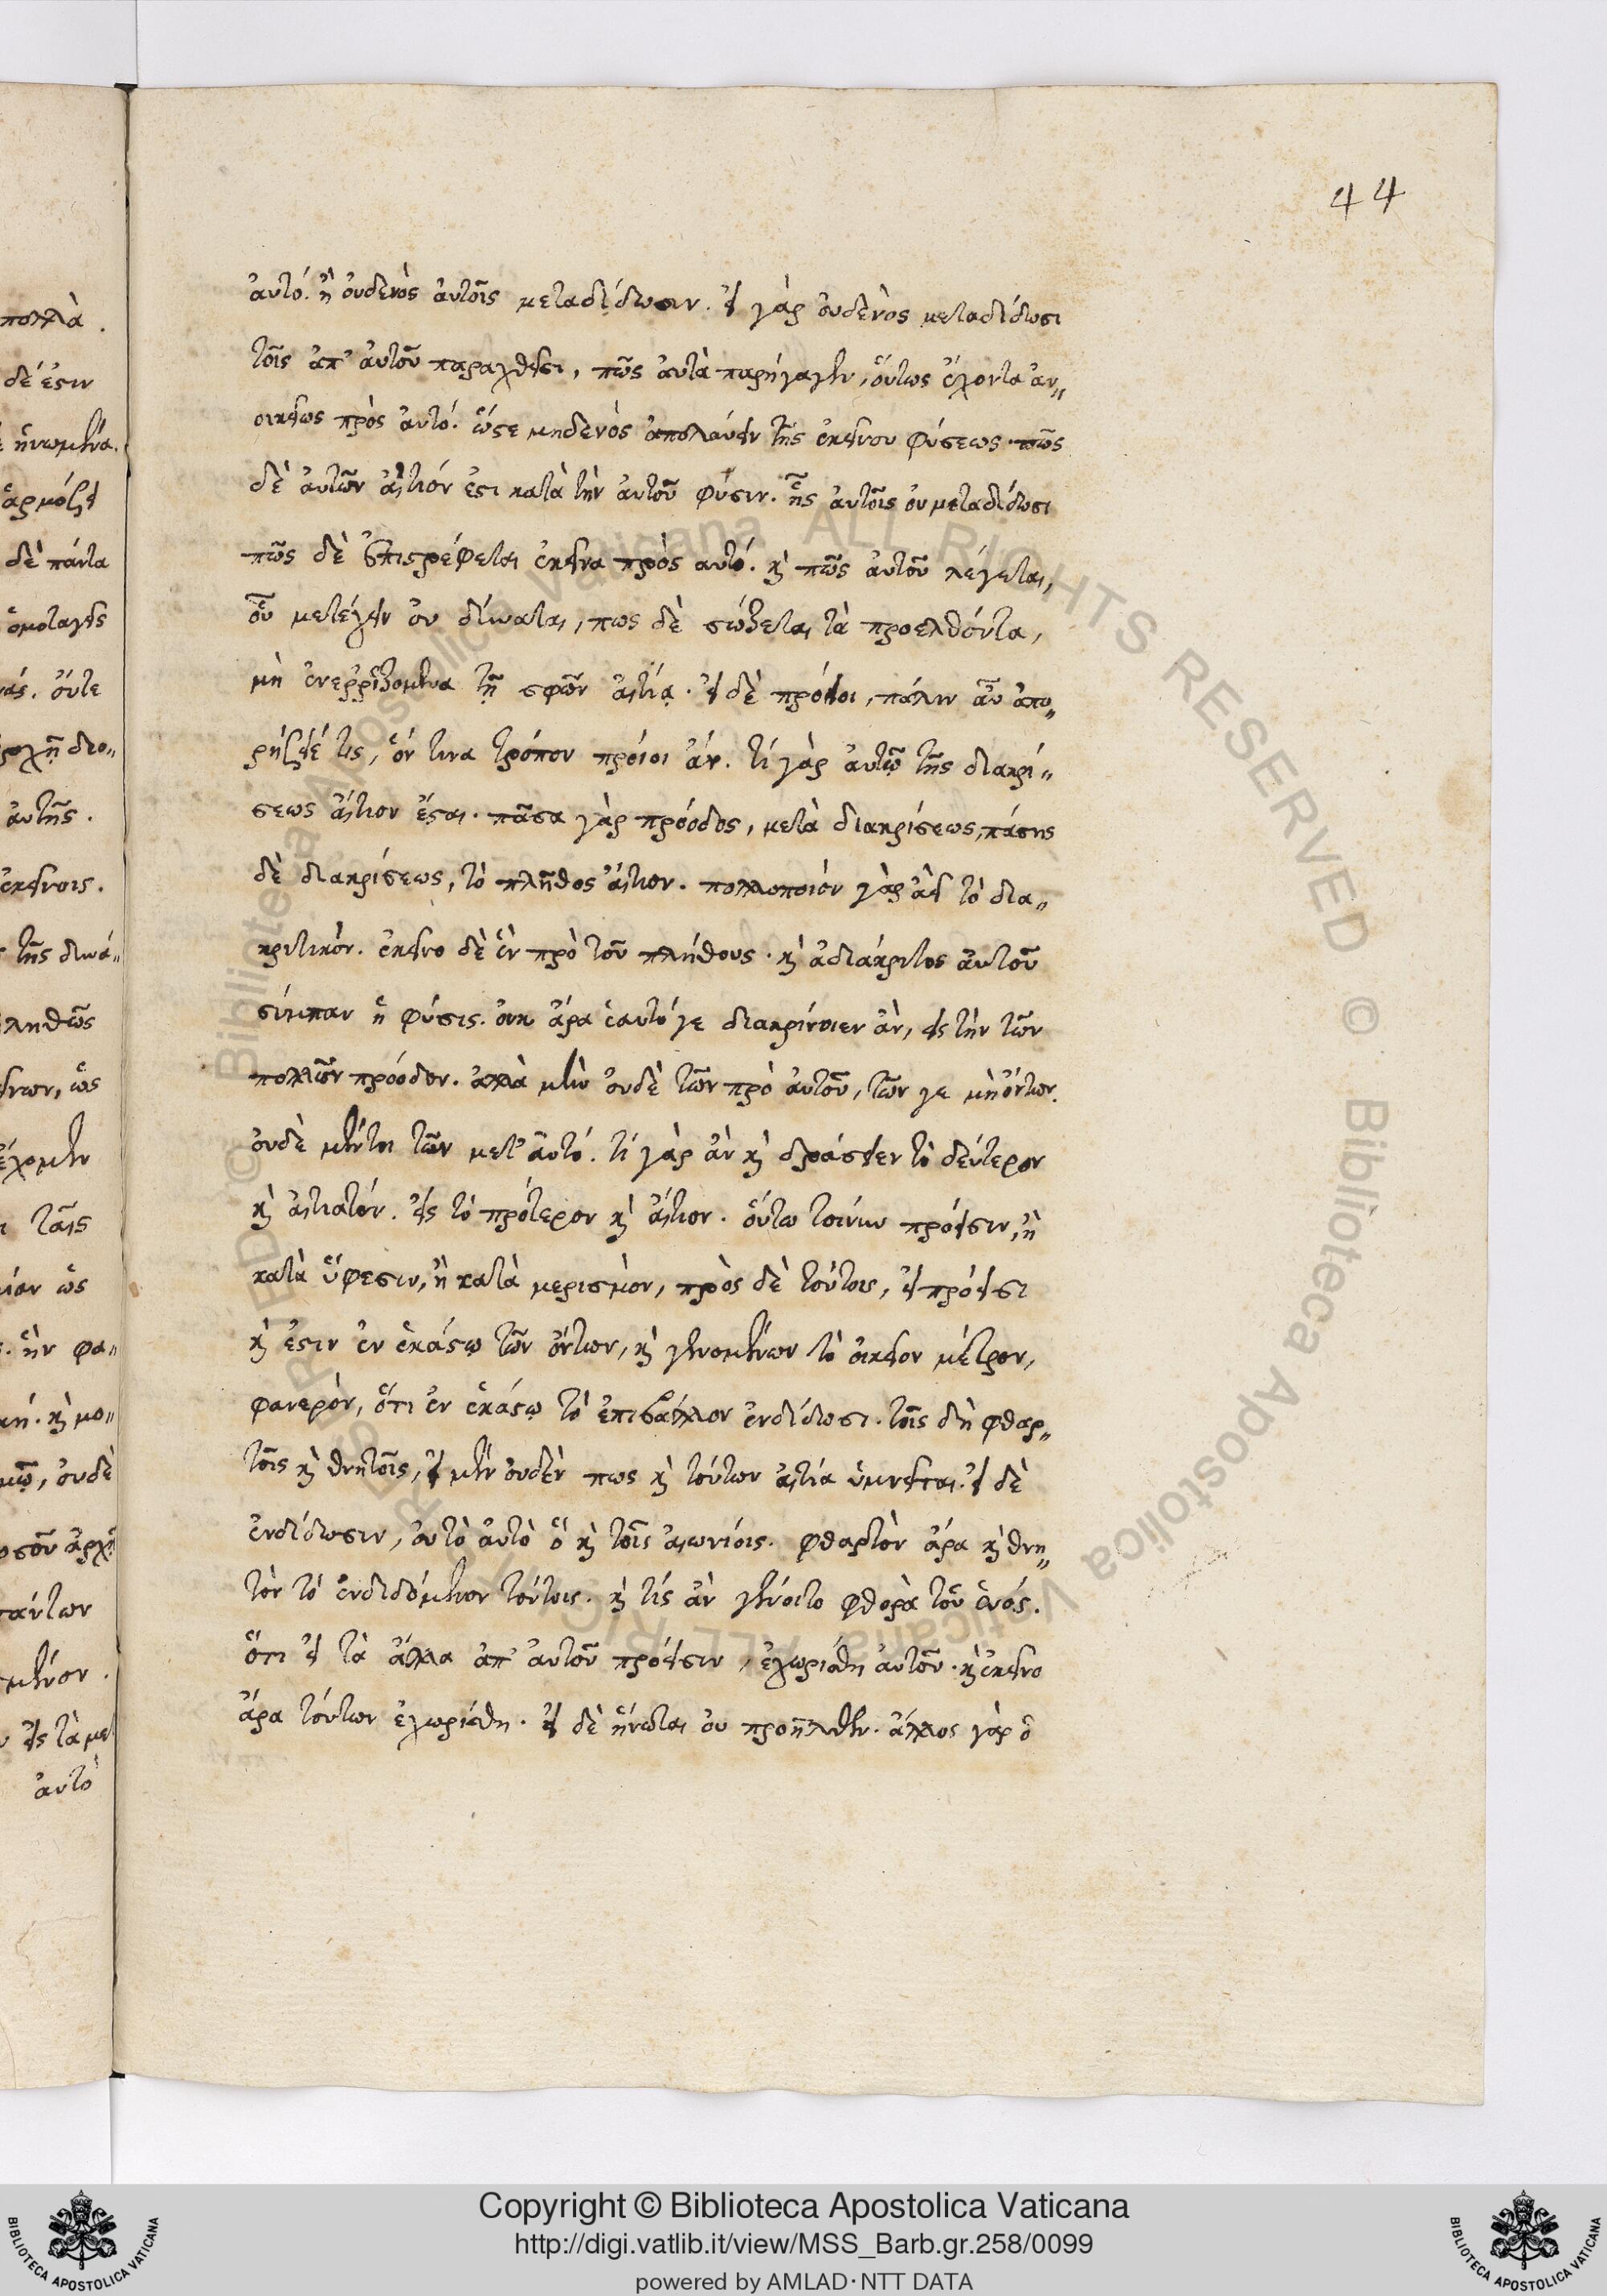 44
αὐτό. ἢ οὐδενὸς αὐτοῖς μεταδίδωσιν. εἰ γὰρ οὐδενὸς μεταδίδωσι
τοῖς ἀπ' αὐτοῦ παραχθεῖσι, πῶς αὐτὰ παρήγαγεν, οὕτως ἔχοντα ἀν„
οικείως πρὸς αὐτό. ὥστε μηδενὸς ἀπολαύειν τῆς ἐκείνου φύσεως. πῶς
δὲ αὐτῶν αἴτιόν ἐστι κατὰ τὴν αὐτοῦ φύσιν. ἧς αὐτοῖς οὐ μεταδίδωσι
πῶς δὲ ἐπιστρέφεται ἐκεῖνα πρὸς αυτό. κὶ πῶς αὐτοῦ λέγεται,
οὗ μετέχειν οὐ δύναται, πως δὲ σώζεται τὰ προελθόντα,
μὴ ἐνερριζομενα τῇ σφῶν αἰτίᾳ. εἰ δὲ πρόεισι, πάλιν αὖ ἀπο„
ρήζειέ τις, ὅν τινα τρόπον πρόιοι ἄν. τί γὰρ αὐτῷ τῆς διακρί„
σεως αἴτιον ἔσται. πᾶσα γὰρ πρόοδος, μετὰ διακρίσεως, πάσης
δὲ διακρίσεως, τὸ πλῆθος αἴτιον. πολλοποιόν γὰρ ἀεὶ τὸ δια„
κριτικόν. ἐκεῖνο δὲ ἓν πρὸ τοῦ πλήθους. κὶ ἀδιάκριτος αὐτοῦ
σύμπαν ἡ φύσις. οὐκ ἄρα ἑαυτό γε διακρίνοιεν ἂν, εἰς τὴν τῶν
πολλῶν πρόοδον. ἀλλὰ μὴν οὐδὲ τῶν πρὸ αὐτοῦ, τῶν γε μὴ ὄντων.
οὐδὲ μέντοι τῶν μετ' αὐτό. τί γὰρ ἂν κὶ δράσειεν τὸ δεύτερον
κὶ αἰτιατόν. εἰς τὸ πρότερον κὶ αἴτιον. οὕτω τοίνυν πρόεισιν, ἢ
κατὰ ὕφεσιν, ἢ κατὰ μερισμὸν, πρὸς δὲ τούτοις, εἰ πρόεισι
κὶ ἐστιν ἐν ἑκάστῳ τῶν ὄντων, κὶ γενομένων τὸ οἰκεῖον μέτρον,
φανερὸν, ὅτι ἐν ἑκάστῳ τὸ ἐπιβάλλον ἐνδίδωσι. τοῖς δὴ φθαρ„
τοῖς κὶ θνητοῖς, εἰ μὲν οὐδέν πως κὶ τούτων αἰτία ὑμνεῖται. εἰ δὲ
ἐνδίδωσιν, οὐ τὸ αὐτὸ ὃ κὶ τοῖς αἰωνίοις. φθαρτὸν ἄρα κὶ θνη„
τὸν τὸ ἐνδιδόμενον τούτοις. κὶ τίς ἂν γένοιτο φθορὰ τοῦ ἑνός.
ὅτι εἰ τὰ ἄλλα ἀπ' αὐτοῦ πρόεισιν, ἐχωρίσθη αὐτοῦ. κὶ ἐκεῖνο
ἄρα τούτων ἐχωρίσθη. εἰ δὲ ἥνωται οὐ προῆλθεν. ἄλλος γὰρ ὁ
Copyright © Biblioteca Apostolica Vaticana
http://digi.vatlib.it/view/MSS_Barb.gr.258/0099
powered by AMLAD·NTT DATA